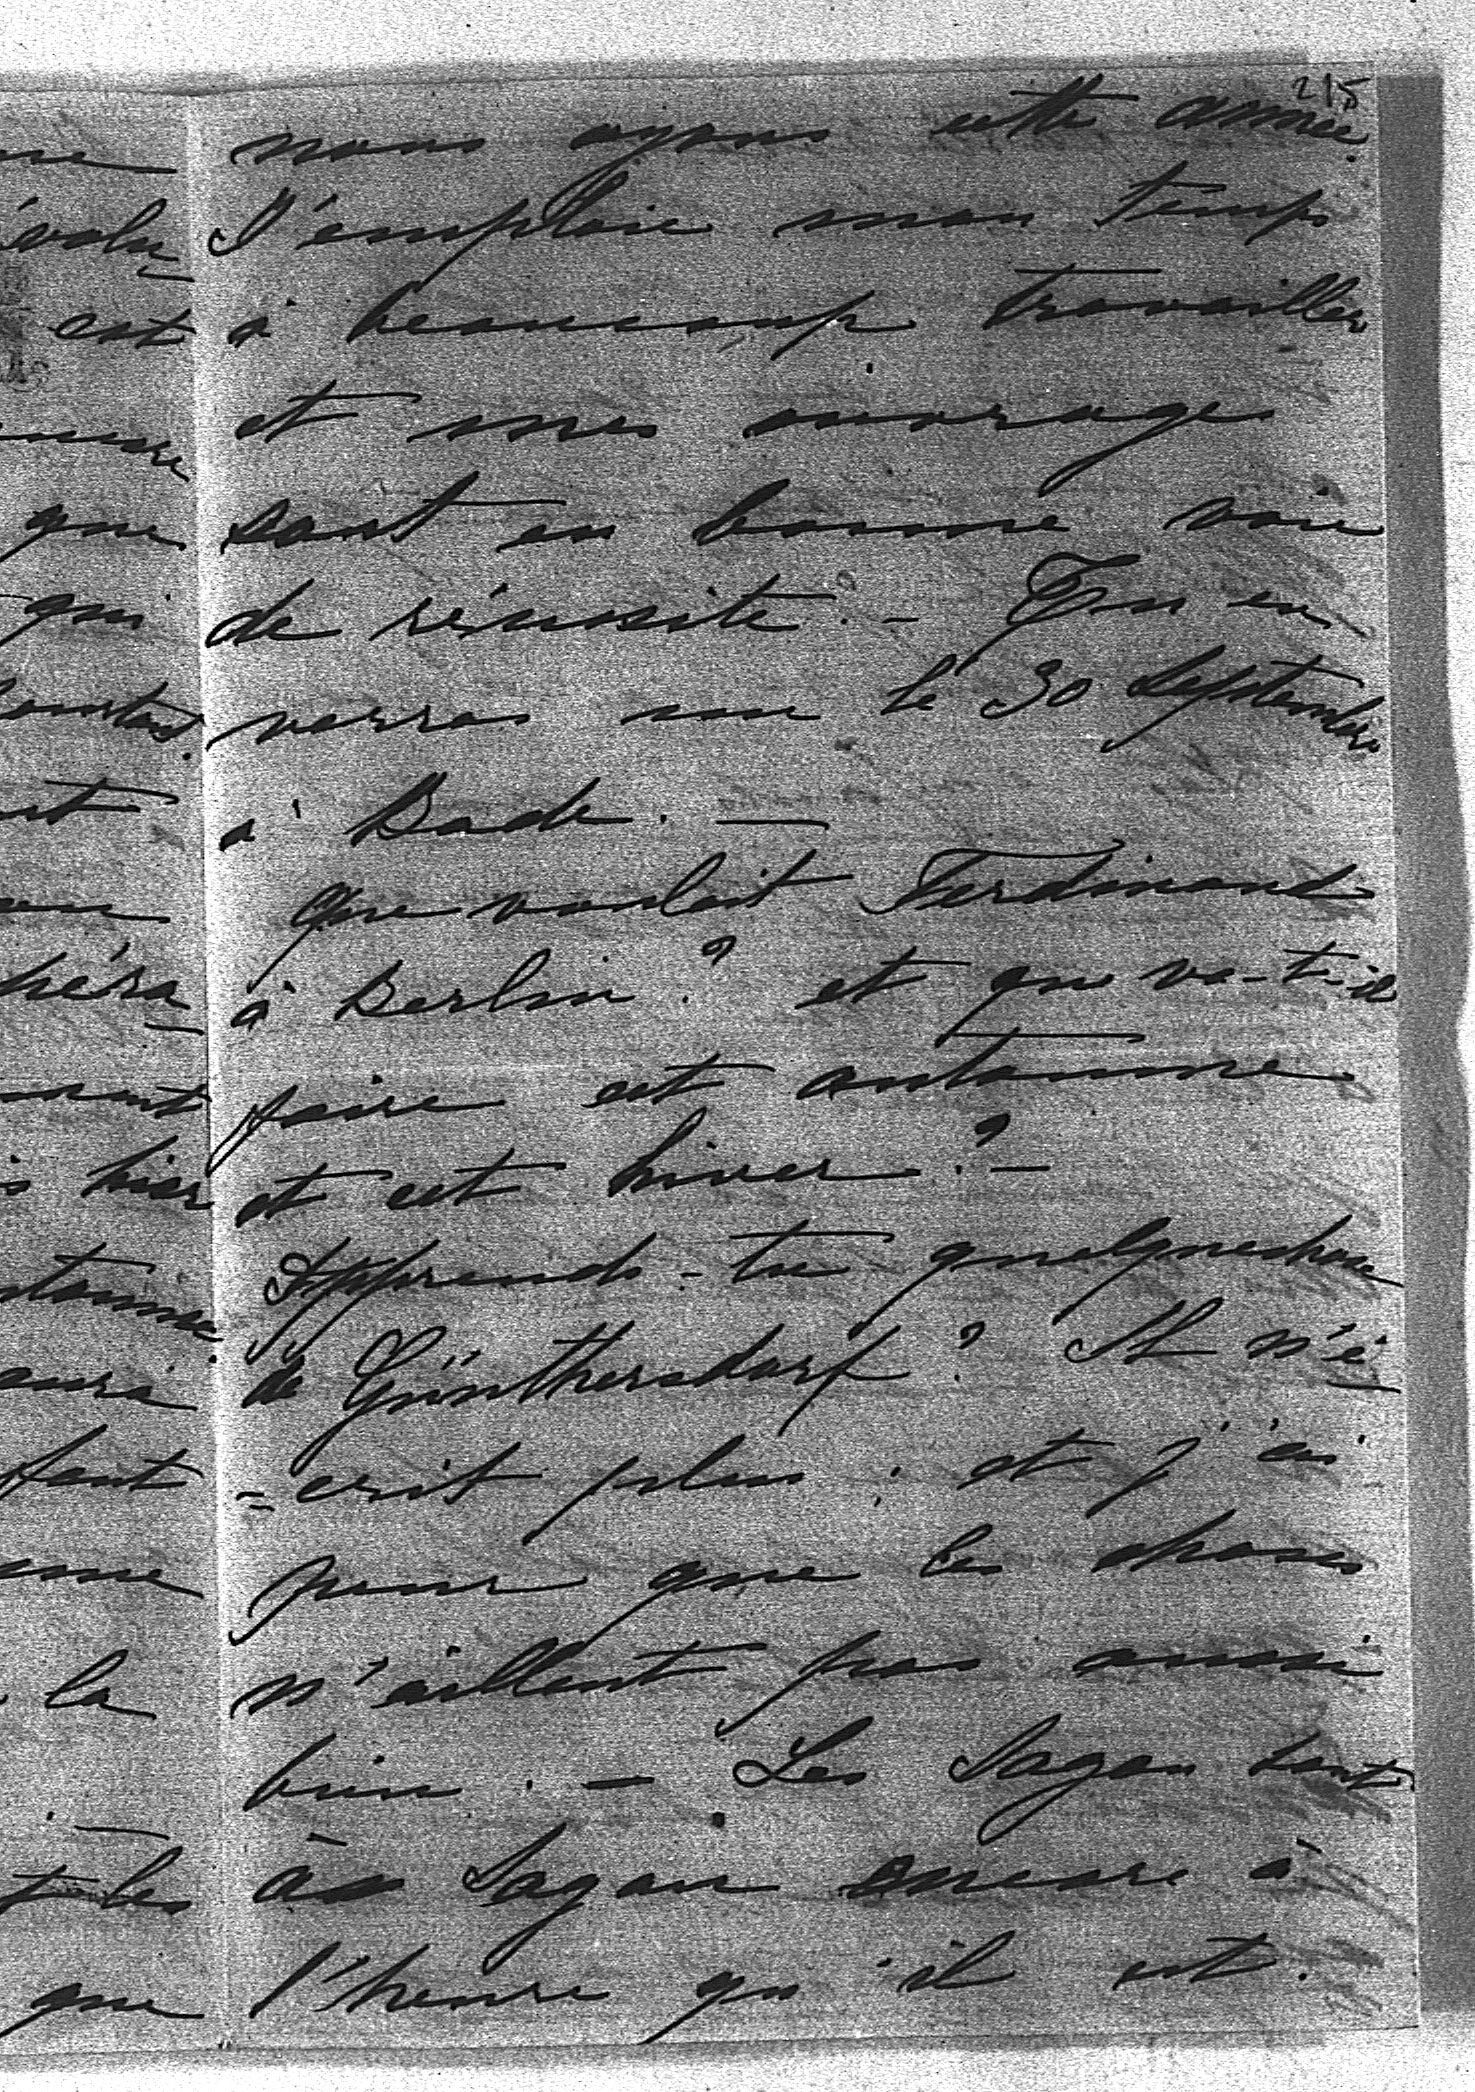 215
nous ayons cette année.
J'emploie mon temps
à beaucoup travailler
et mes ouvrages
sont en bonne voie
de réussite. – Tu en
verras un le 30 Septembre
à Bade. —
Que voulait Ferdinand
à Berlin? et que va-t-il
faire cet automne
et cet hiver? –
Apprends-tu quelquechose
de Günthersdorf? Il n'é-
=crit plus; et j'ai
peur que les choses
n'aillent pas aussi
bien. – Les Sagan sont
à Sagan encore à
l'heure qu'il est.
est
que
qui
hier
la
que